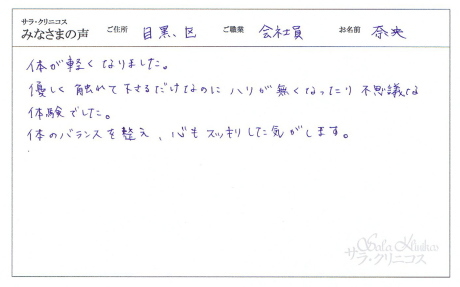 サラ・クリニコス
みなさまの声 ご住所 目黒区 ご職業 会社員 お名前 奈央
体が軽くなりました。
優しく触れて下さるだけなのにハリが無くなったり不思議な
体験でした。
体のバランスを整え、心もスッキリした気がします。
Sala Klinikos
サラ・クリニコス